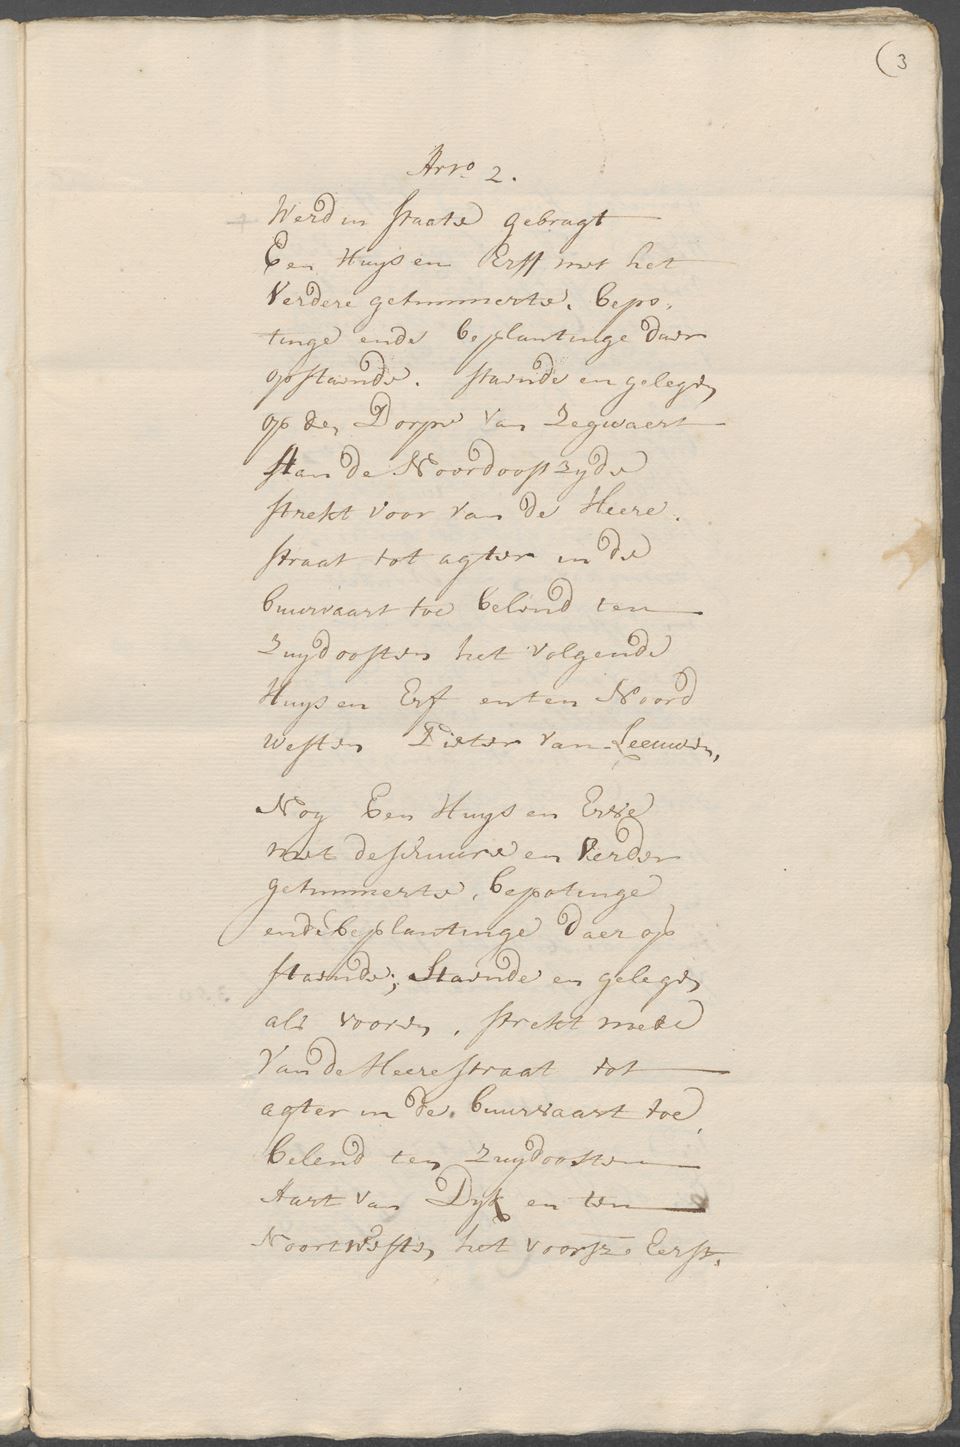 (3
Arto 2.
Werd in staate gebragt
Een Huys en Erff met het
Verdere getimmerte, bepo,
tinge ende beplantinge daer
opstaende. staende en gelegen
op den Dorpe van Zegwaert
Aan de Noordoostzyde
strekt voor van de Heere,
straat tot agter in de
buurvaart toe belend ten
Zuydoosten het volgende
Huys en Erf en ten Noord
westen Pieter van Leeuwen,
Nog Een Huys en Erve
met de schuure en Verder
getimmerte, bepotinge
ende beplantinge daer op
staende; Staende en gelegen
als vooren, strekt mede
Van de Heerestraat tot
agter in de buurvaart toe,
belend ten Zuydoosten
Aart van Dyk en ten
Noortwesten het voorsz. Eerst,